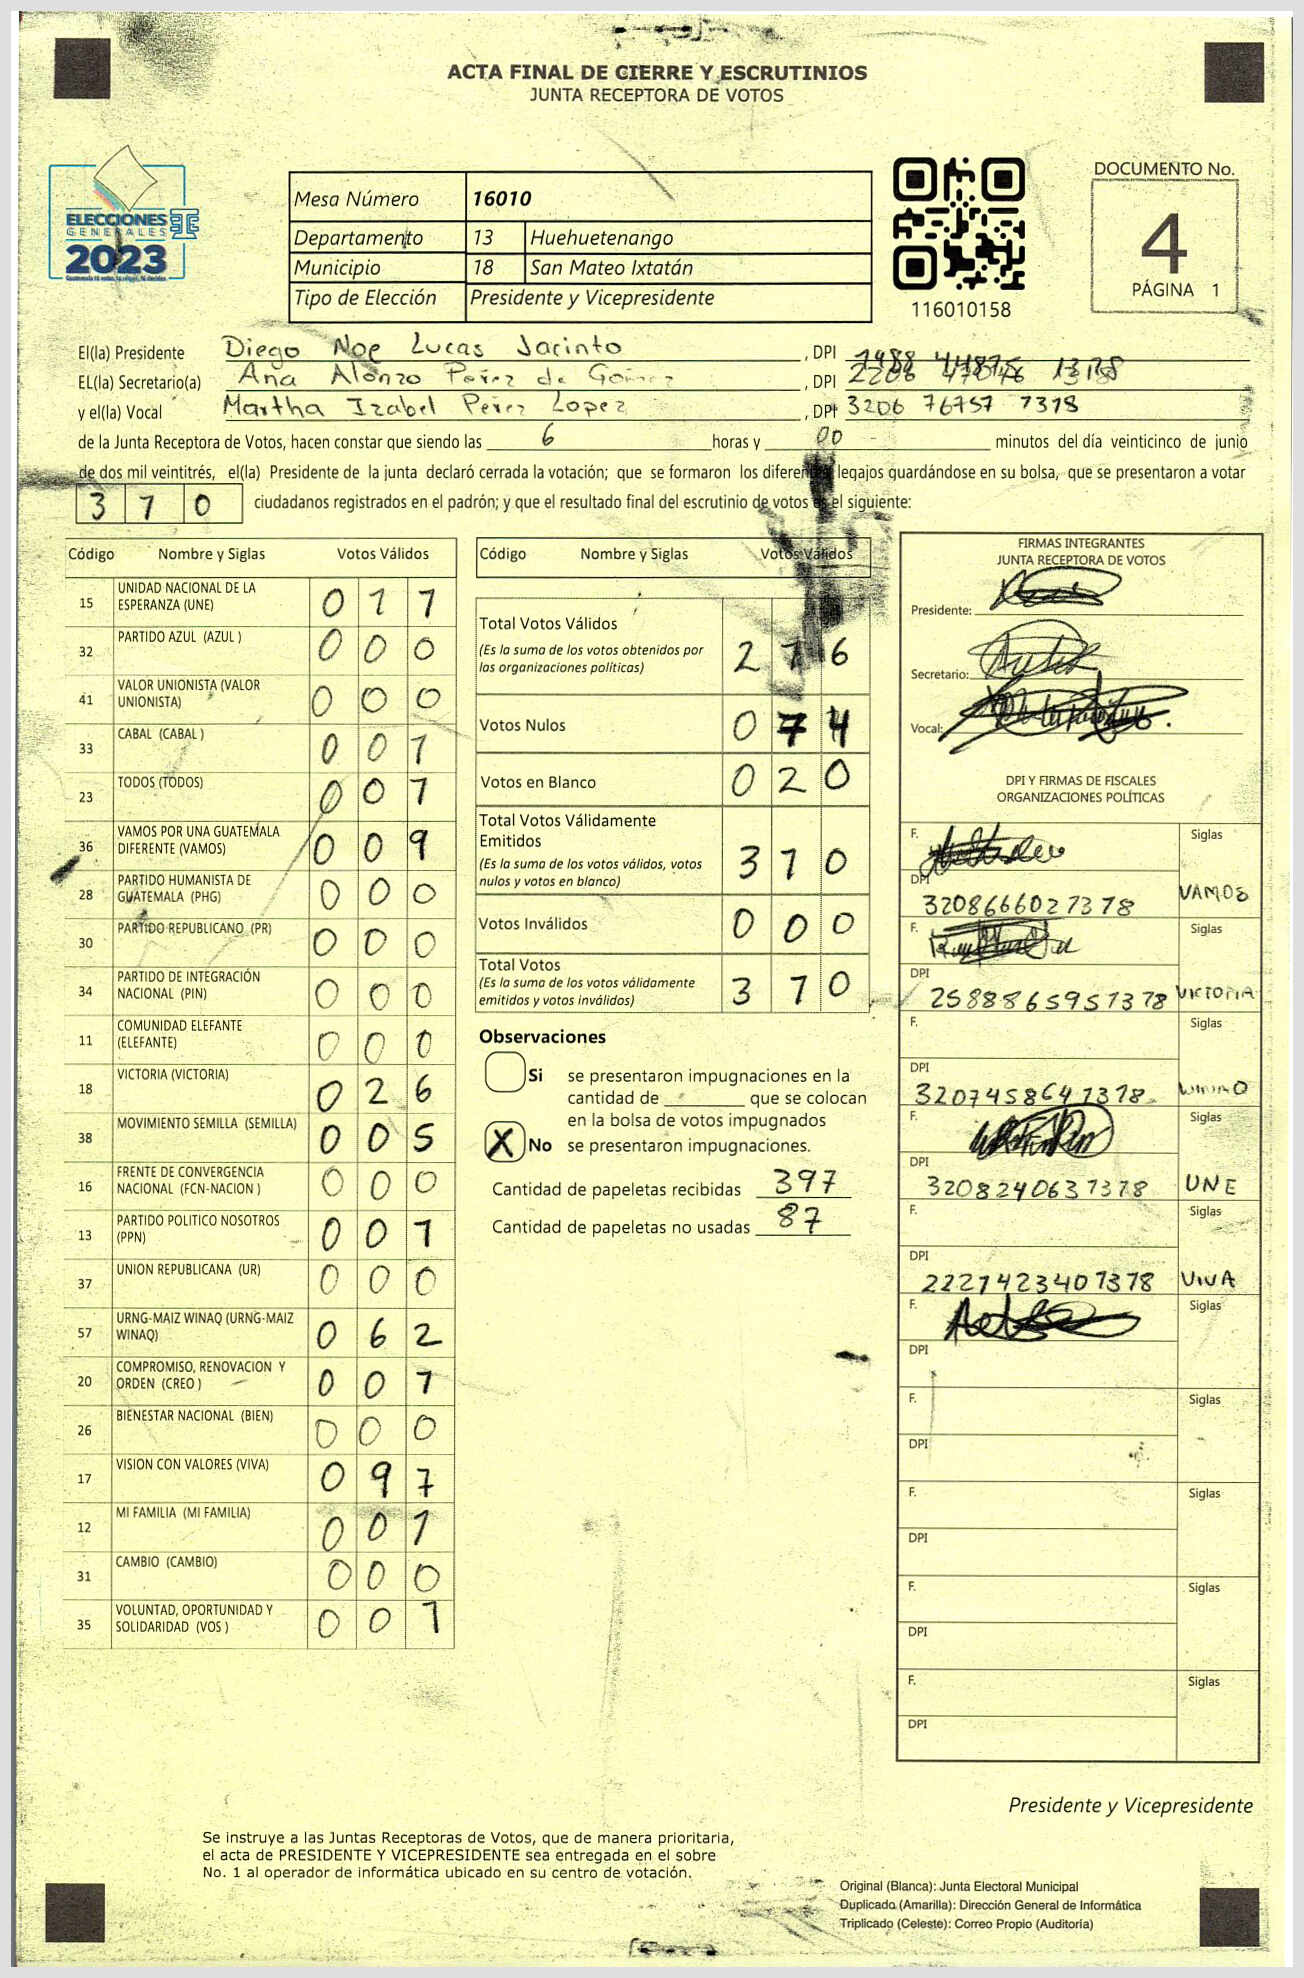 ACTA FINAL DE CIERRE Y ESCRUTINIOS
JUNTA RECEPTORA DE VOTOS
ELECCIONES
GENERALES
2023
Mesa Número 16010
Departamento 13 Huehuetenango
Municipio 18 San Mateo Ixtatán
Tipo de Elección Presidente y Vicepresidente
116010158
DOCUMENTO No.
4
PÁGINA 1
El(la) Presidente Diego Noe Lucas Jacinto , DPI
EL(la) Secretario(a) Ana Alonzo Perez de Gomez , DPI
y el(la) Vocal Martha Izabel Perez Lopez , DPI 3206 76757 1318
de la Junta Receptora de Votos, hacen constar que siendo las 6 horas y 00 minutos del día veinticinco de junio
de dos mil veintitrés, el(la) Presidente de la junta declaró cerrada la votación; que se formaron los diferentes legajos guardándose en su bolsa, que se presentaron a votar
370 ciudadanos registrados en el padrón; y que el resultado final del escrutinio de votos es el siguiente:
Código Nombre y Siglas Votos Válidos
15 UNIDAD NACIONAL DE LA ESPERANZA (UNE) 0 7 1
32 PARTIDO AZUL (AZUL ) 0 0 0
41 VALOR UNIONISTA (VALOR UNIONISTA) 0 0 0
33 CABAL (CABAL ) 0 0 1
23 TODOS (TODOS) 0 0 1
36 VAMOS POR UNA GUATEMALA DIFERENTE (VAMOS) 0 0 9
28 PARTIDO HUMANISTA DE GUATEMALA (PHG) 0 0 0
30 PARTIDO REPUBLICANO (PR) 0 0 0
34 PARTIDO DE INTEGRACIÓN NACIONAL (PIN) 0 0 0
11 COMUNIDAD ELEFANTE (ELEFANTE) 0 0 0
18 VICTORIA (VICTORIA) 0 2 6
38 MOVIMIENTO SEMILLA (SEMILLA) 0 0 5
16 FRENTE DE CONVERGENCIA NACIONAL (FCN-NACION ) 0 0 0
13 PARTIDO POLITICO NOSOTROS (PPN) 0 0 1
37 UNION REPUBLICANA (UR) 0 0 0
57 URNG-MAIZ WINAQ (URNG-MAIZ WINAQ) 0 6 2
20 COMPROMISO, RENOVACION Y ORDEN (CREO ) 0 0 1
26 BIENESTAR NACIONAL (BIEN) 0 0 0
17 VISION CON VALORES (VIVA) 0 9 7
12 MI FAMILIA (MI FAMILIA) 0 0 1
31 CAMBIO (CAMBIO) 0 0 0
35 VOLUNTAD, OPORTUNIDAD Y SOLIDARIDAD (VOS ) 0 0 1
Código Nombre y Siglas Votos Válidos
Total Votos Válidos 2 7 6
(Es la suma de los votos obtenidos por
las organizaciones políticas)
Votos Nulos 0 7 4
Votos en Blanco 0 2 0
Total Votos Válidamente
Emitidos 3 7 0
(Es la suma de los votos válidos, votos
nulos y votos en blanco)
Votos Inválidos 0 0 0
Total Votos 3 7 0
(Es la suma de los votos válidamente
emitidos y votos inválidos)
Observaciones
Si se presentaron impugnaciones en la
cantidad de ________ que se colocan
en la bolsa de votos impugnados
X No se presentaron impugnaciones.
Cantidad de papeletas recibidas 397
Cantidad de papeletas no usadas 87
FIRMAS INTEGRANTES
JUNTA RECEPTORA DE VOTOS
Presidente:
Secretario:
Vocal:
DPI Y FIRMAS DE FISCALES
ORGANIZACIONES POLÍTICAS
F. Siglas
DPI 3208666021318 VAMOS
F. Siglas
DPI 2588865951318 VICTORIA
F. Siglas
DPI 3207458641318
F. Siglas
DPI 3208240631318 UNE
F. Siglas
DPI 2221423401318 VIVA
F. Siglas
DPI
F. Siglas
DPI
F. Siglas
DPI
F. Siglas
DPI
F. Siglas
DPI
Presidente y Vicepresidente
Se instruye a las Juntas Receptoras de Votos, que de manera prioritaria,
el acta de PRESIDENTE Y VICEPRESIDENTE sea entregada en el sobre
No. 1 al operador de informática ubicado en su centro de votación.
Original (Blanca): Junta Electoral Municipal
Duplicado (Amarilla): Dirección General de Informática
Triplicado (Celeste): Correo Propio (Auditoría)